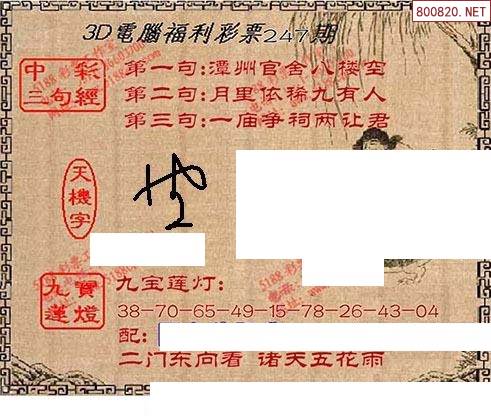 800820.NET
3D電腦福利彩票247期
中彩
三句經
第一句:潭州官舍八楼空
第二句:月里依稀九有人
第三句:一庙争祠两让君
天機字
九寶
蓮燈
九宝莲灯:
38-70-65-49-15-78-26-43-04
配:
二门东向看 诸天五花雨